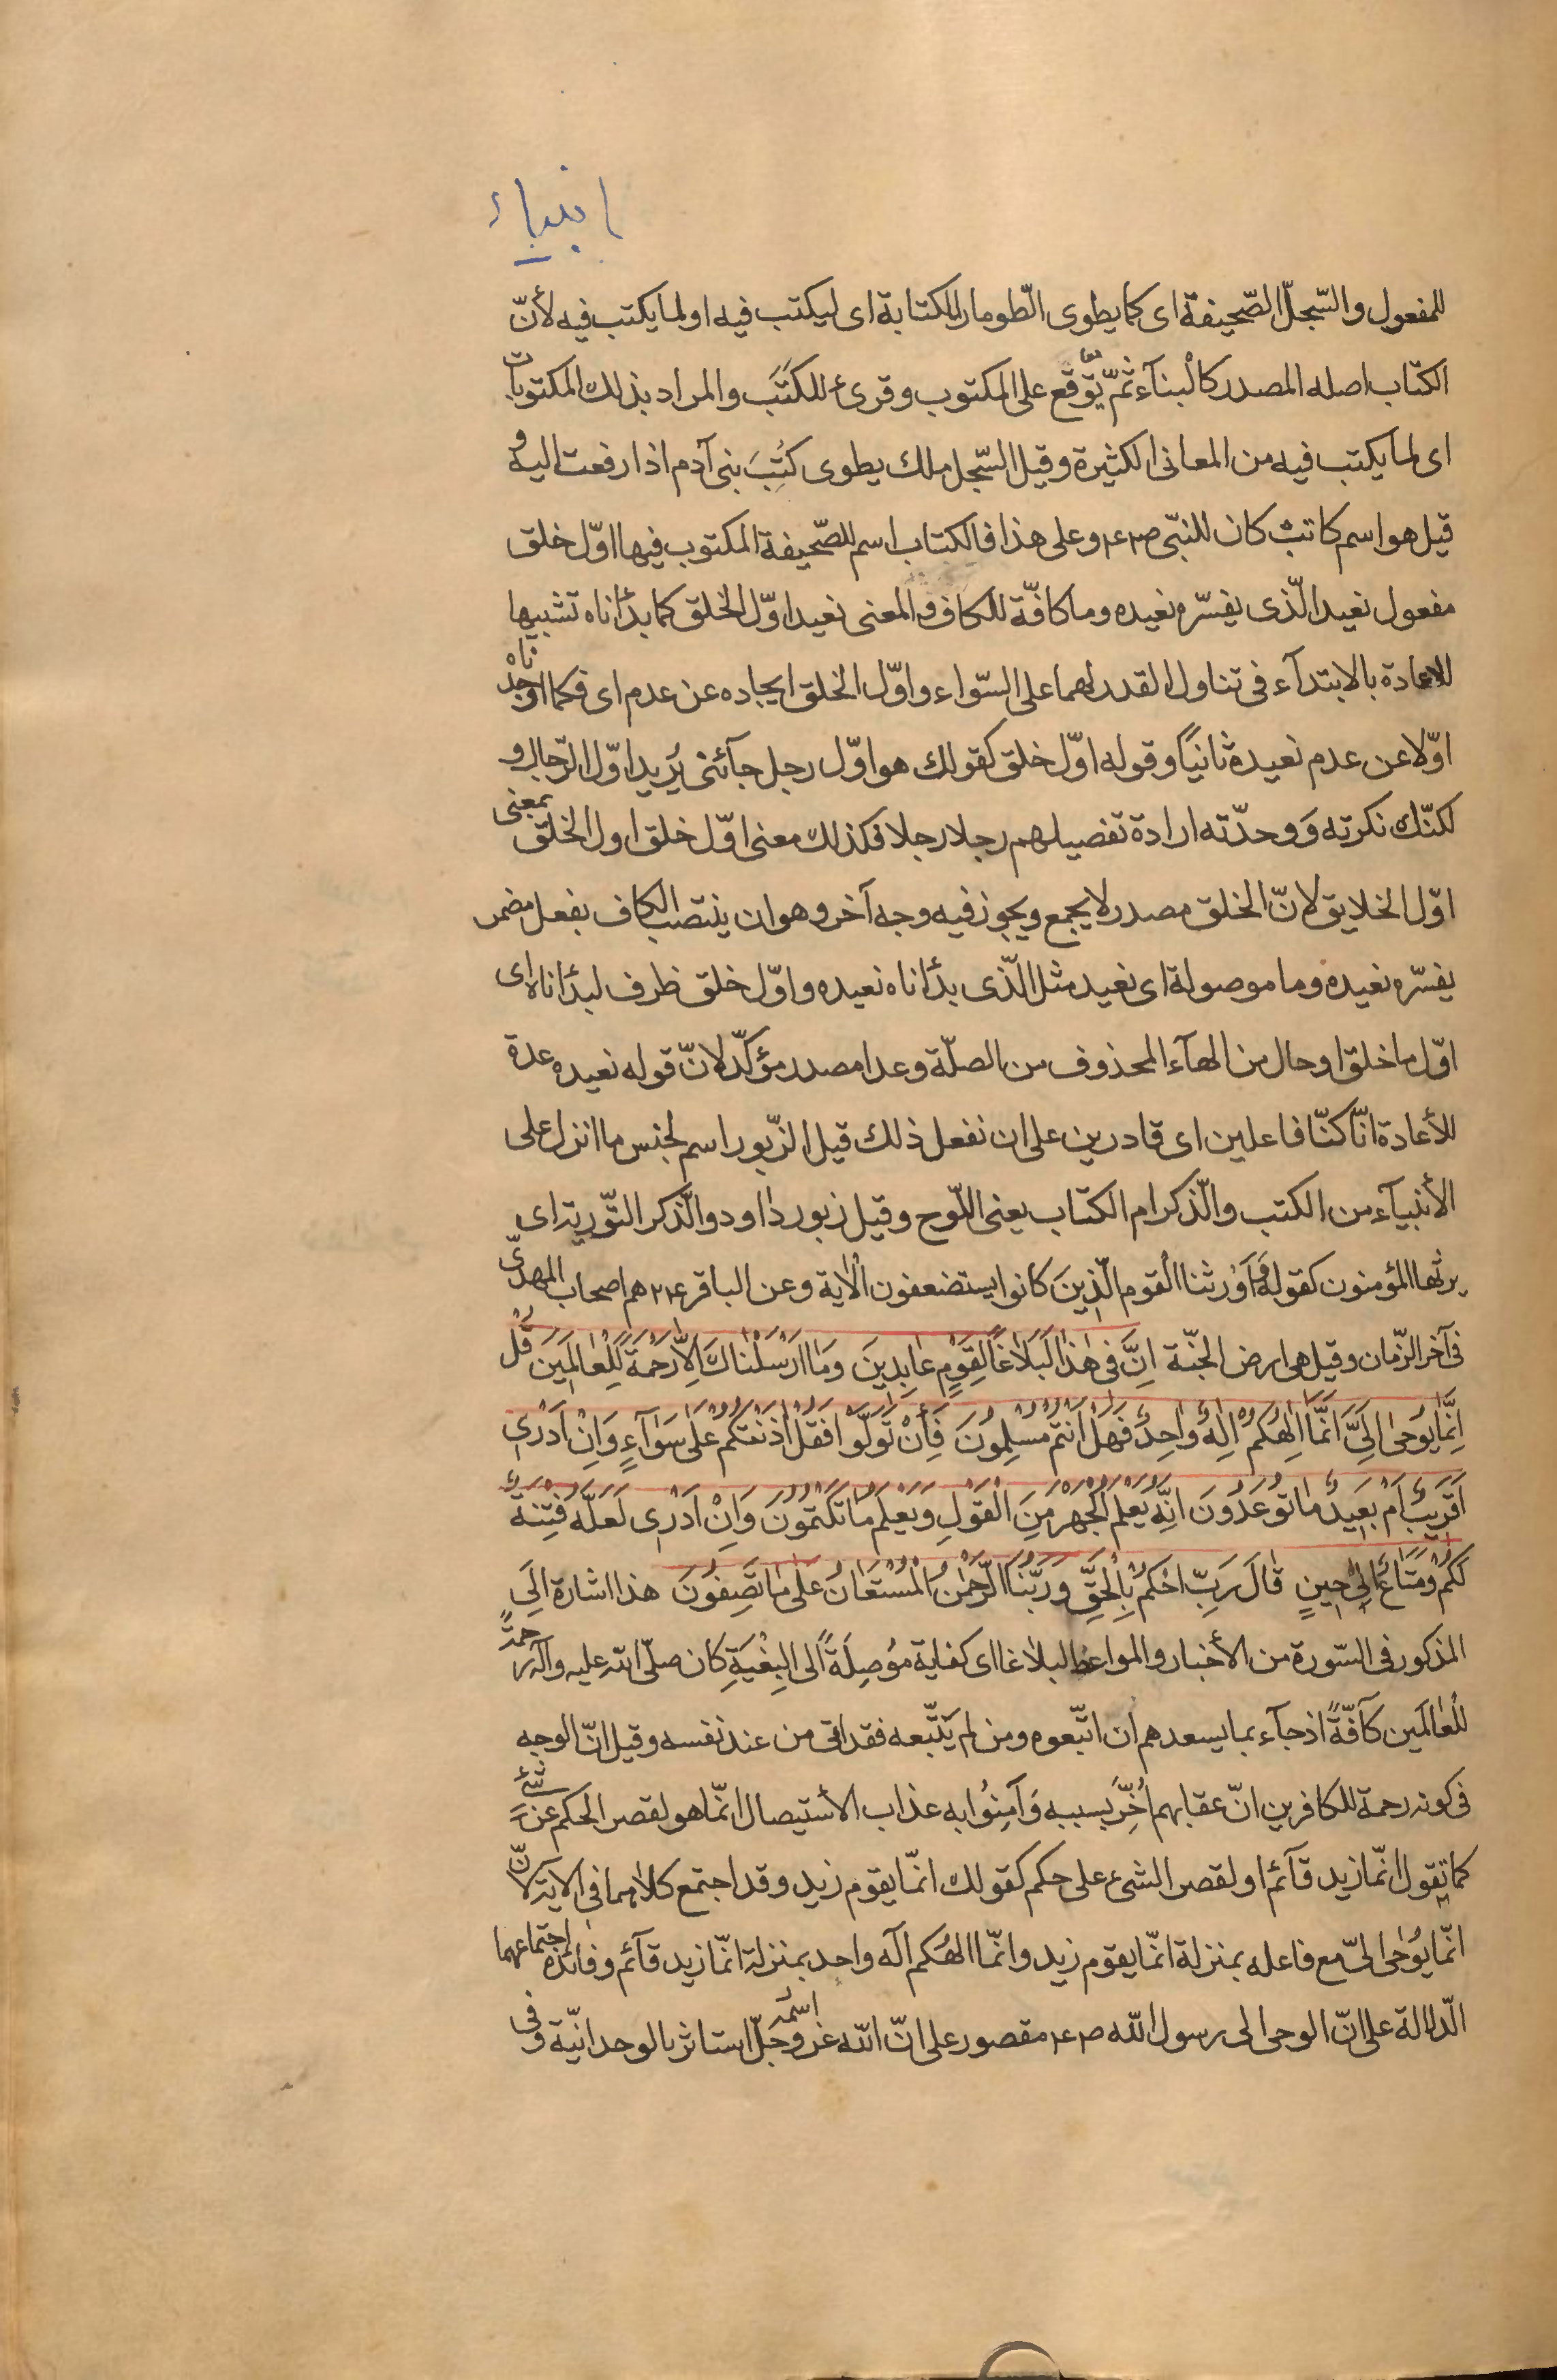 انبیاء
للمفعول والسّجلّ الصّحیفة ای کما یطوی الطّومار للکتابة ای لیکتب فیه او لما یکتب فیه لأنّ
الکتاب اصله المصدر کالْبنآء ثمّ یوقع علی المکتوب وقرئ للکُتُبَ والمراد بذلك المکتوبات
ای لما یکتب فیه من المعانی الکثیرة وقیل السّجل ملك یطوی کُتُبَ بنی آدم اذا رفعت الیه و
قیل هو اسم کاتب کان للنبّی ص٢ع٢ وعلی هذا فالکتاب اسم للصّحیفة المکتوب فیها اوّل خلق
مفعول نعید الّذی یفسّره نعیده وما کافّة للکاف والمعنی نعید اوّل الخلق کما بدأناه تشبیها
للاعادة بالابتدآء فی تناول القدر لهما علی السّواء واوّل الخلق ایجاده عن عدم ای فکما اوجدناه
اوّلا عن عدم نعیده ثانیًا وقوله اوّل خلق کقولك هو اوّل رجل جآئنی یُرید اوّل الرّجال و
لکنّك نکرته وَوحدّته ارادة تفصیلهم رجلا رجلا فکذلك معنی اوّل خلق اول الخلق بمعنی
اوّل الخلایق لانّ الخلق مصدر لا یجمع ویجوز فیه وجه آخر وهو ان ینتصب الکاف بفعل مضمر
یفسّره نعیده وما موصولة ای نعید مثل الّذی بدأناه نعیده واوّل خلق ظرف لبدأناه ای
اوّل ما خلق او حال من الهآء المحذوف من الصلّة وعدا مصدر مؤکّد لانّ قوله نعیده عدة
للأعادة انّا کنّا فاعلین ای قادرین علی ان نفعل ذلك قیل الزّبور اسم لجنس ما انزل علی
الأنبیآء من الکتب والّذکر ام الکتاب یعنی اللّوح وقیل زبور داود والّذکر التّوریة ای
یرثها المؤمنون کقوله وَاَوْرثنا القوم الّذِینَ کانوا یستضعفون الْآیة وعن الباقر ع٢٢ هم اصحاب المهدیّ
فی آخر الزّمان وقیل هی ارض الجنّة اِنَّ فی هٰذا لَبَلَاغًا لِقَوْمٍ عٰابِدینَ وَمٰا ارْسَلْنٰاكَ اِلّٰا رَحْمَةً لِلْعٰالَمینَ قُلْ
اِنَّمٰا یُوحٰی اِلَیَّ اَنَّمٰا اِلٰهُکُمْ اِلٰهٌ وٰاحِدٌ فَهَلْ اَنْتُمْ مُسْلِمُونَ فَأِنْ تَوَلَّوْا فَقُلْ اٰذَنْتُکُمْ عَلٰی سَوٰآءٍ وَاِنْ اَدْرٰی
اَقَرِیبٌ اَمْ بَعِیدٌ مٰا تُوعَدُونَ اِنَّهُ یَعْلَمُ الْجَهْرَ مِنَ الْقَوْلِ وَیَعْلَمُ مٰا تَکْتُمُونَ وَاِنْ اَدْرٰی لَعَلَّهُ فِتْنَةٌ
لَکُمْ وَمَتٰاعٌ اِلٰی حِینٍ قٰالَ رَبِّ احْکُمْ بِالْحَقِّ وَرَبُّنَا الرَّحْمٰنُ الْمُسْتَعٰانُ عَلٰی مٰا تَصِفُونَ هذا اشارة اِلَی
المذکور فی السّورة من الأخبار والمواعظ لبلاغا ای کفایة مُوصِلَةً الی الْبِغْیَةِ کان صلّی اللّه علیه وآله رحمةً
للْعٰالَمین کآفّةً اذ جآء بما یسعدهم ان اتّبعوه ومن لم یَتّبعه فقد اتی من عند نفسه وقیل انّ الوجه
فی کونه رحمة للکافرین انّ عقابهم اُخِّرَ بسببه وَآمِنُوا به عذاب الأستیصال انّما هو لقصر الحکم عن شئ
کما تقول انّما زید قآئم او لقصر الشیء علی حکم کقولك انّما یقوم زید وقد اجتمع کلاهما فی الآیة لانّ
انّما یُوحٰی الیّ مع فاعله بمنزلة انّما یقوم زید وانّما الهُکم اله واحد بمنزلة انّما زید قآئم وفائدة اجتماعهما
الّدلالة علی انّ الوحی الی رسول اللّه ص٢ع٢ مقصور علی انّ اللّه عز وجلّ اسمُه استاثر بالوحدانیّة وفی